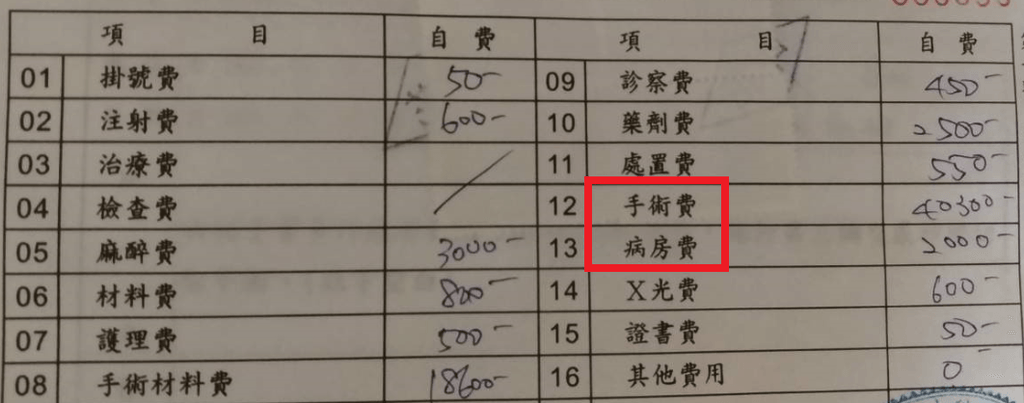 項 目 自 費 項 目 自 費
01 掛號費 50- 09 診察費 450-
02 注射費 600- 10 藥劑費 2500-
03 治療費 11 處置費 550-
04 檢查費 12 手術費 40300-
05 麻醉費 3000- 13 病房費 2000-
06 材料費 800- 14 X光費 600-
07 護理費 500- 15 證書費 50-
08 手術材料費 18600- 16 其他費用 0